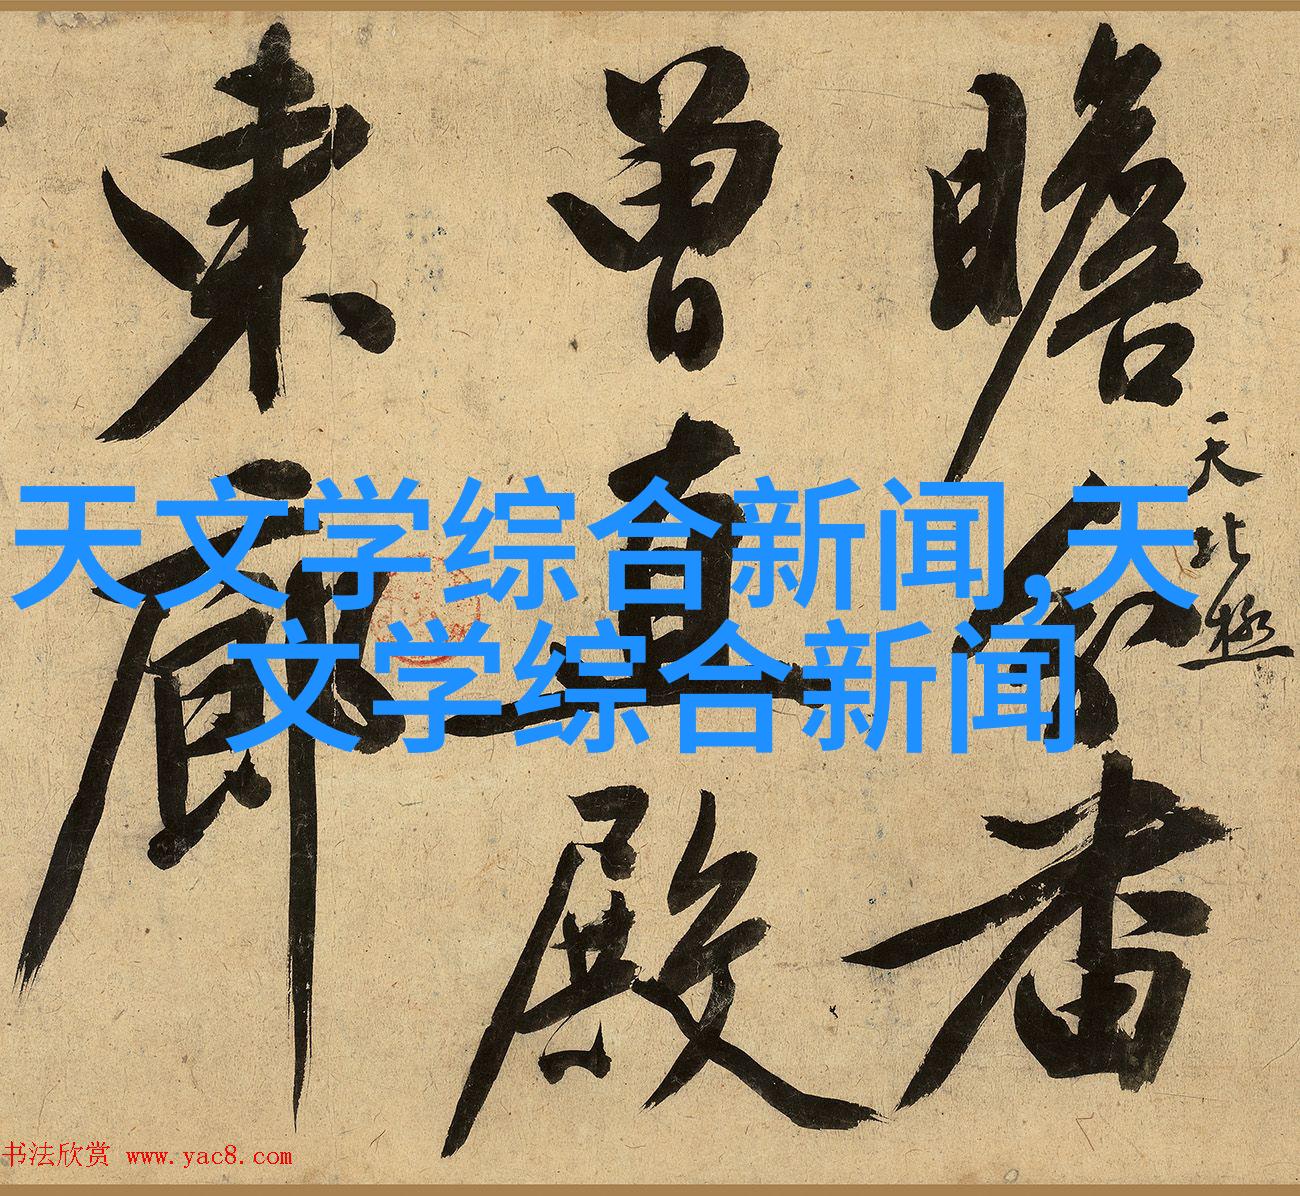 天文学综合新闻,天
文学综合新闻
瞻
天北極
曾直殿
東廊
书法欣赏 www.yac8.com